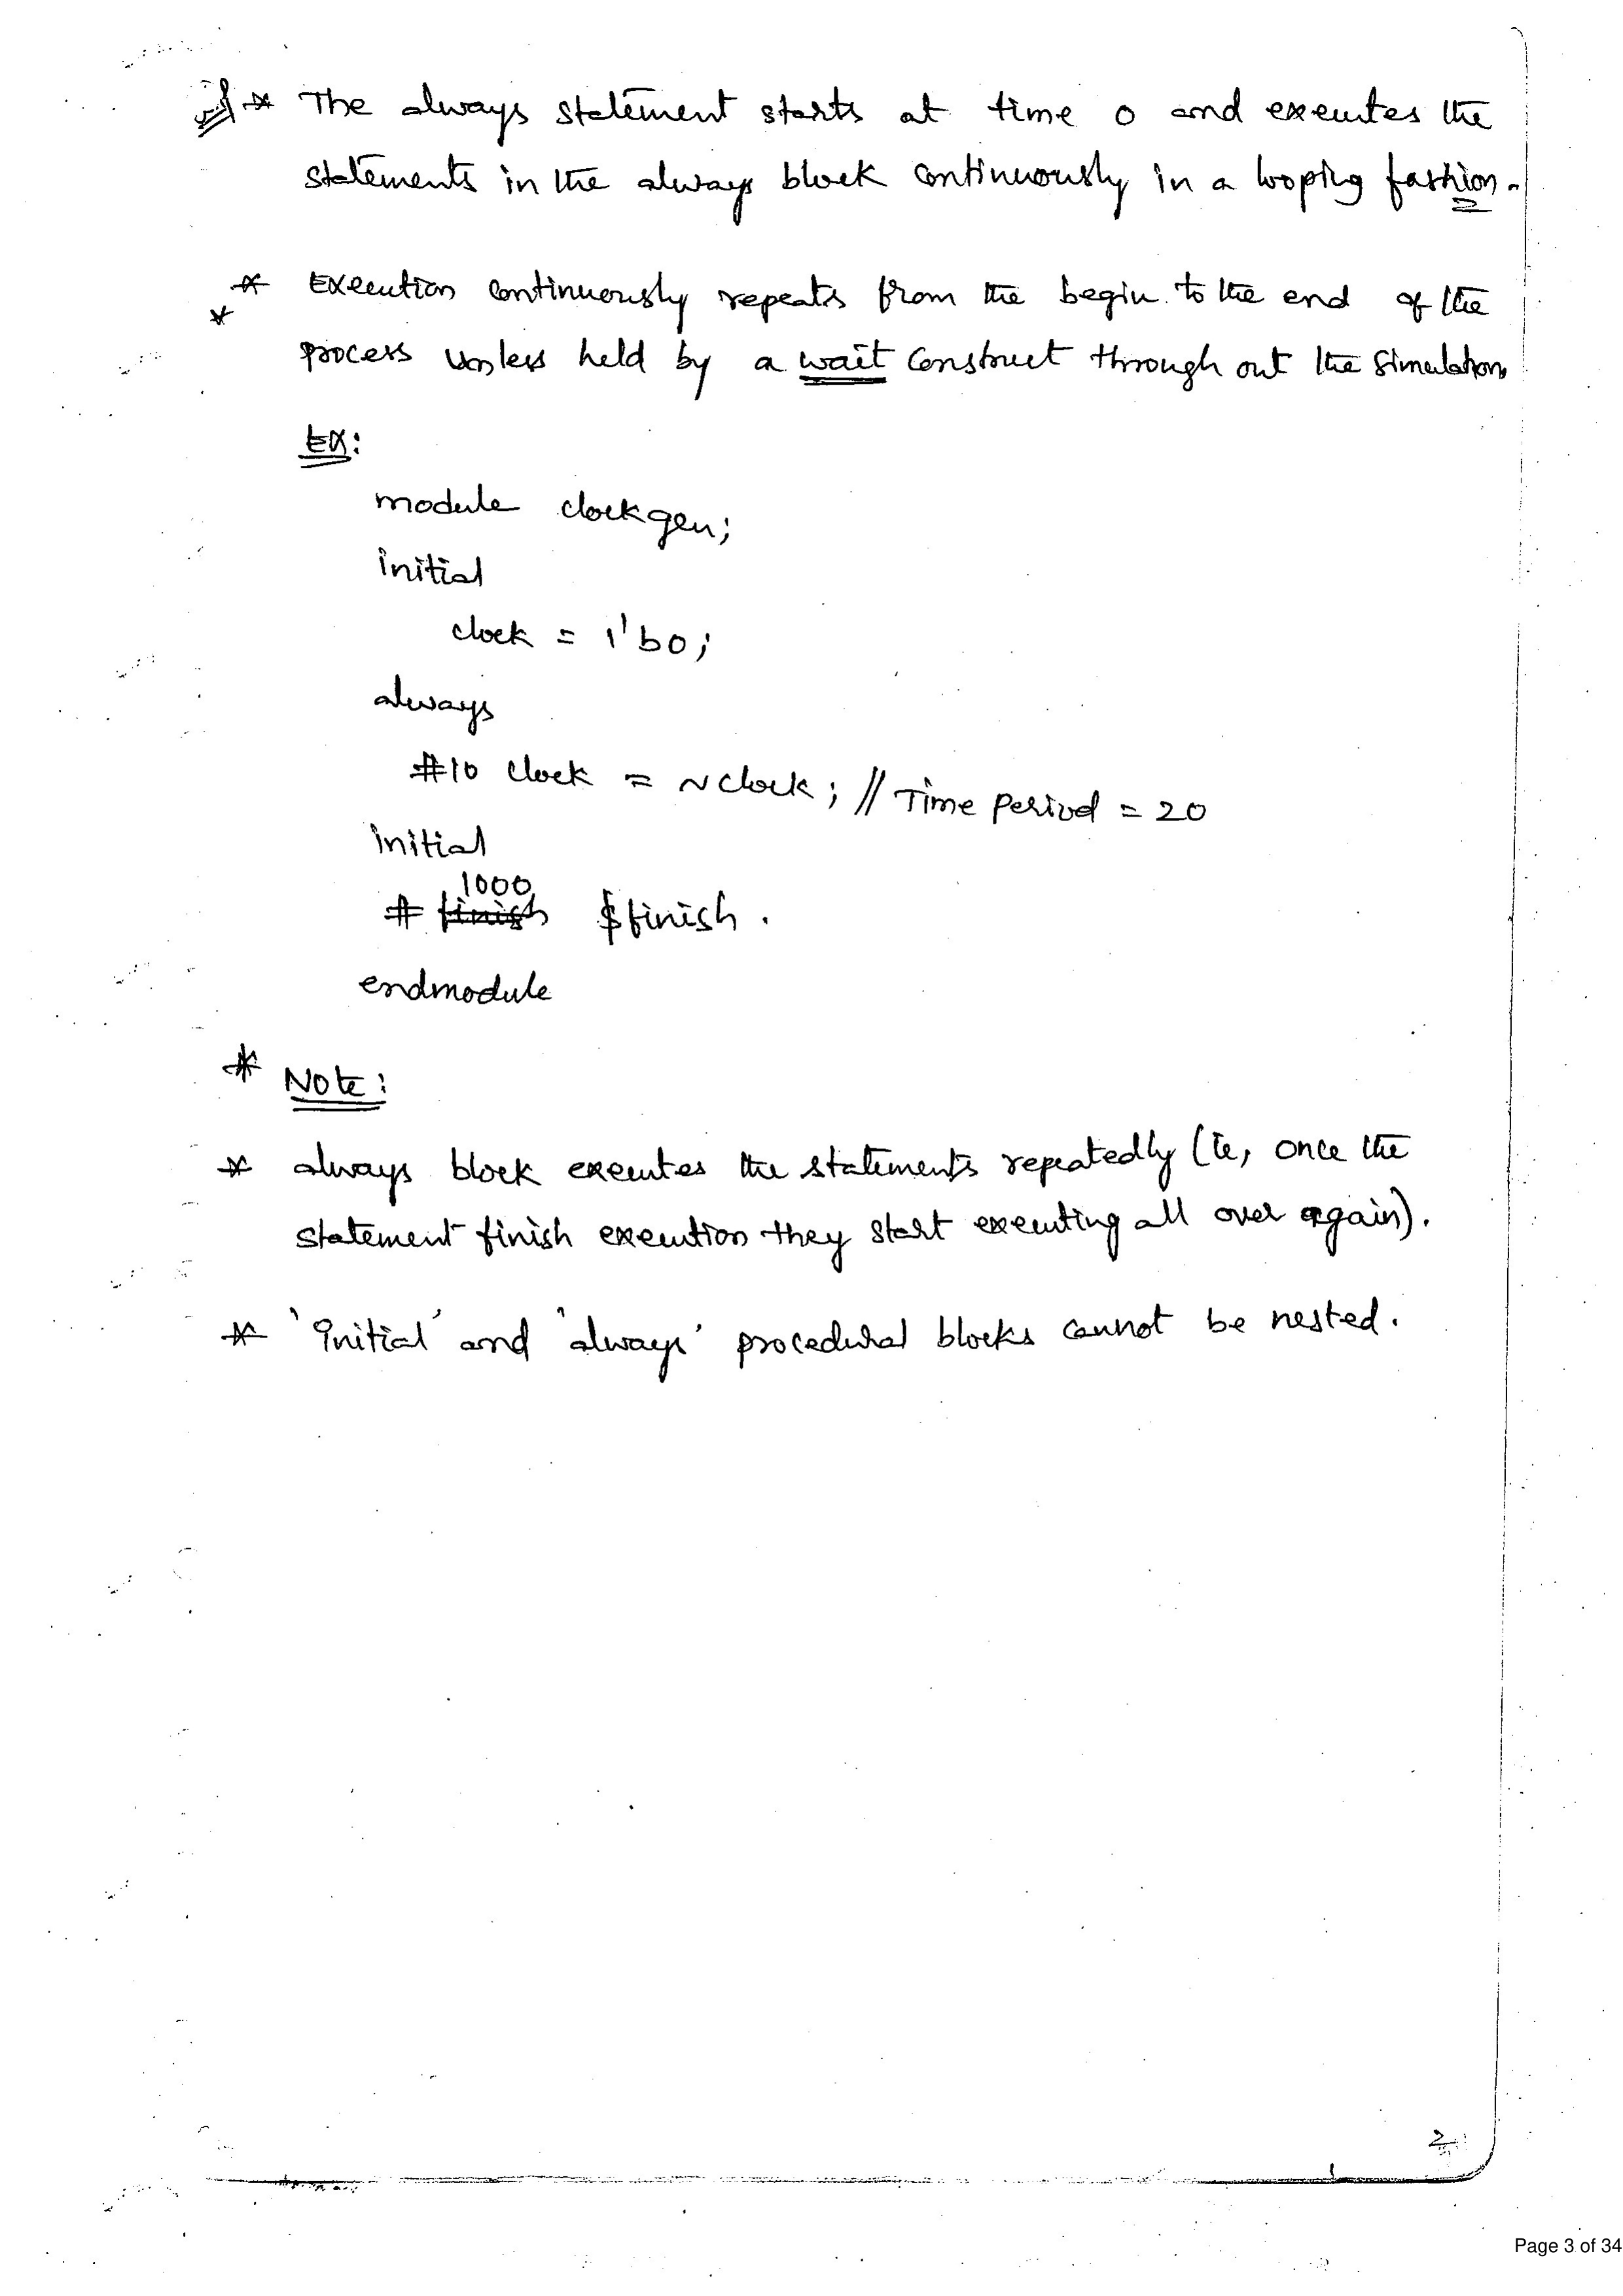 * The always statement starts at time 0 and executes the
statements in the always block continuously in a looping fashion.
* Execution continuously repeats from the begin to the end of the
* process unless held by a wait construct through out the simulation
EX:
module clockgen;
initial
clock = 1'b0;
always
#10 clock = ~clock; // Time Period = 20
initial
1000
# finish $finish.
endmodule
* Note:
* always block executes the statements repeatedly (ie, once the
statement finish execution they start executing all over again).
* 'Initial' and 'always' procedural blocks cannot be nested.
2
Page 3 of 34